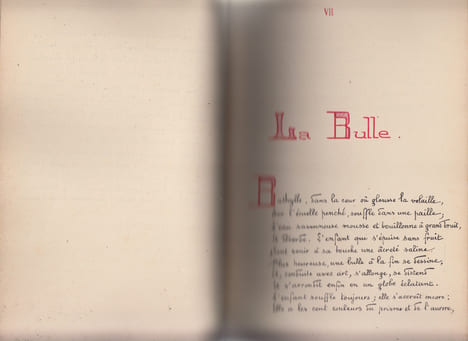 VII
La Bulle.
Bathylle, dans la cour où glousse la volaille,
Sur l'écuelle penché, souffle dans une paille ;
L'eau savonneuse mousse et bouillonne à grand bruit,
Et déborde. L'enfant qui s'épuise sans fruit
Sent venir à sa bouche une âcreté saline.
Plus heureuse, une bulle à la fin se dessine,
Et, conduite avec art, s'allonge, se distend
Et s'arrondit enfin en un globe éclatant.
L'enfant souffle toujours ; elle s'accroît encore ;
Elle a les cent couleurs du prisme et de l'aurore,